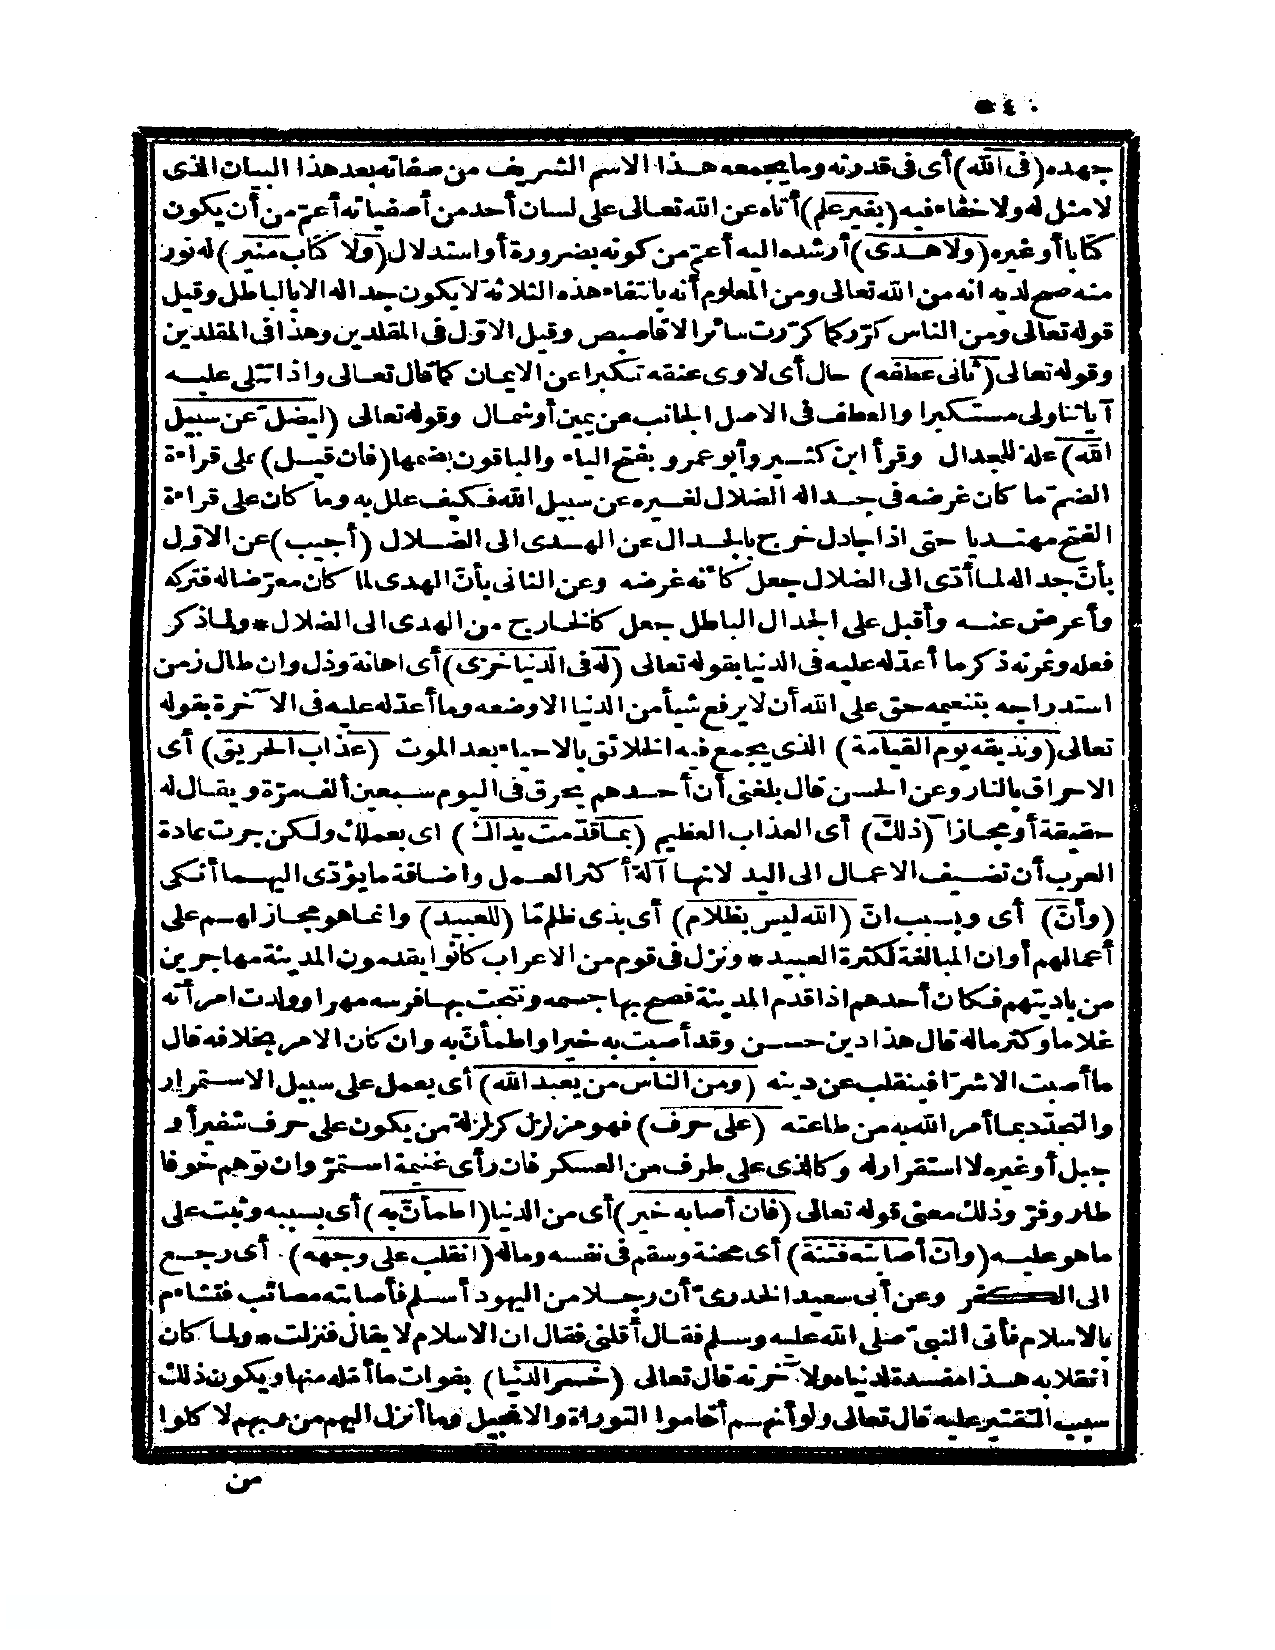 ٥٤٠
جهده (فى الله) أى فى قدرته وما يجمعه هذا الاسم الشريف من صفاته بعد هذا البيان الذى
لا مثل له ولا خفاء فيه (بغير علم) أتاه عن الله تعالى على لسان أحد من أصفيائه أعمّ من أن يكون
كتابا أو غيره (ولا هدى) أرشده اليه أعمّ من كونه بضرورة أو استدلال (ولا كتاب منير) له نور
منه صح لديه انه من الله تعالى ومن المعلوم أنه بانتفاء هذه الثلاثة لا يكون جداله الا بالباطل وقيل
قوله تعالى ومن الناس كرّر كما كرّرت سائر الاقاصيص وقيل الاوّل فى المقلدين وهذا فى المقلدين
وقوله تعالى (ثانى عطفه) حال أى لاوى عنقه تكبرا عن الايمان كما قال تعالى واذا تتلى عليه
آياتنا ولى مستكبرا والعطف فى الاصل الجانب عن يمين أو شمال وقوله تعالى (ليضلّ عن سبيل
الله) علة للجدال وقرأ ابن كثير وأبو عمرو بفتح الياء والباقون بضمها (فان قيل) على قراءة
الضمّ ما كان غرضه فى جداله الضلال لغيره عن سبيل الله فكيف علل به وما كان على قراءة
الفتح مهتديا حتى اذا جادل خرج بالجدال عن الهدى الى الضلال (أجيب) عن الاوّل
بأنّ جداله لما أدّى الى الضلال جعل كأنه غرضه وعن الثانى بأنّ الهدى لما كان معرّضا له فتركه
وأعرض عنه وأقبل على الجدال الباطل جعل كالخارج من الهدى الى الضلال * ولما ذكر
فعله وغرته ذكر ما أعدّ له عليه فى الدنيا بقوله تعالى (له فى الدنيا خزى) أى اهانة وذل وان طال زمن
استدراجه بتنعيمه حق على الله أن لا يرفع شيأ من الدنيا الا وضعه وما أعدّ له عليه فى الآخرة بقوله
تعالى (ونذيقه يوم القيامة) الذى يجمع فيه الخلائق بالاحياء بعد الموت (عذاب الحريق) أى
الاحراق بالنار وعن الحسن قال بلغنى أن أحدهم يحرق فى اليوم سبعين ألف مرّة ويقال له
حقيقة أو مجازا (ذلك) أى العذاب العظيم (بما قدّمت يداك) اى بعملك ولكن جرت عادة
العرب أن تضيف الاعمال الى اليد لانها آلة أكثر العمل واضافة ما يؤدّى اليهما أنكى
(وأنّ) أى وبسبب انّ (الله ليس بظلام) أى بذى ظلم مّا (للعبيد) وانما هو مجاز لهم على
أعمالهم أو ان المبالغة لكثرة العبيد * ونزل فى قوم من الاعراب كانوا يقدمون المدينة مهاجرين
من باديتهم فكان أحدهم اذا قدم المدينة فصح بها جسمه ونتجت بها فرسه مهرا وولدت امرأته
غلاما وكثر ماله قال هذا دين حسن وقد أصبت به خيرا واطمأنّ به وان كان الامر بخلافه قال
ما أصبت الا شرّا فينقلب عن دينه (ومن الناس من يعبد الله) أى يعمل على سبيل الاستمرار
والتجدّد بما أمر الله به من طاعته (على حرف) فهو مزلزل كزلزلة من يكون على حرف شفير أو
جبل أو غيره لا استقرار له وكالذى على طرف من العسكر فان رأى غنيمة استمرّ وان توّهم خوفا
طار وفرّ وذلك معنى قوله تعالى (فان أصابه خير) أى من الدنيا (اطمأنّ به) أى بسببه وثبت على
ما هو عليه (وان أصابته فتنة) أى محنة وسقم فى نفسه وماله (انقلب على وجهه) أى رجع
الى الكفر وعن أبى سعيد الخدرىّ أن رجلا من اليهود أسلم فأصابته مصائب فتشاءم
بالاسلام فأتى النبىّ صلى الله عليه وسلم فقال أقلنى فقال ان الاسلام لا يقال فنزلت * ولما كان
انقلابه هذا مفسدة لدنياه ولآخرته قال تعالى (خسر الدنيا) بفوات ما أمّله منها ويكون ذلك
سبب التقتير عليه قال تعالى ولو أنهم أقاموا التوراة والانجيل وما أنزل اليهم من ربهم لاكلوا
من